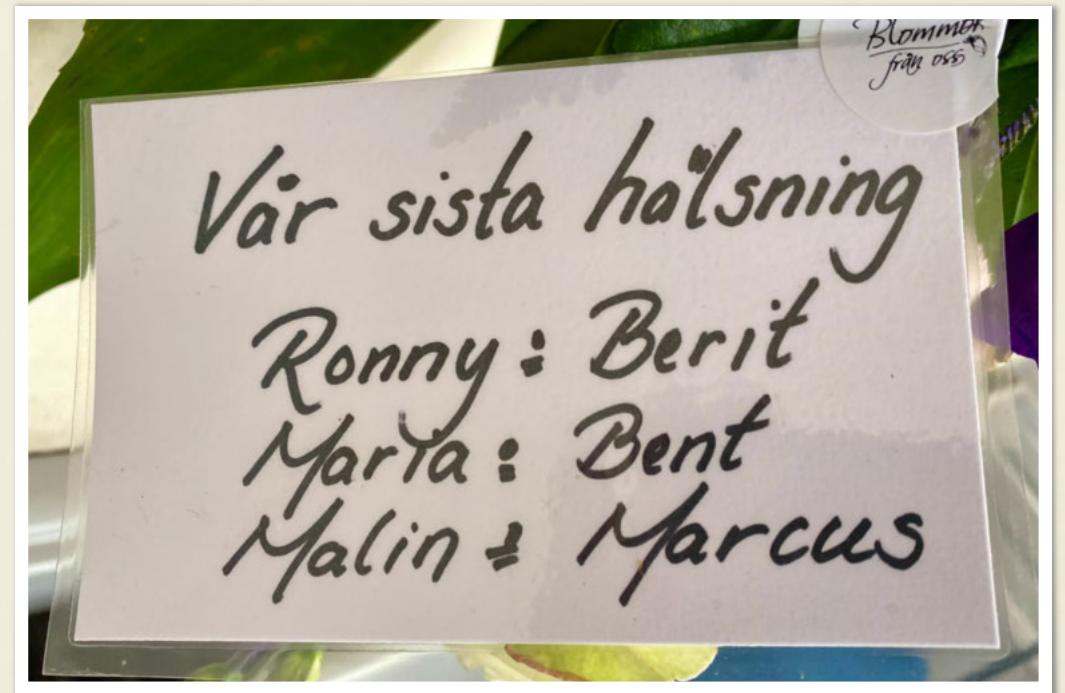 Blommor
från oss
Vår sista hälsning
Ronny : Berit
Maria : Bent
Malin : Marcus